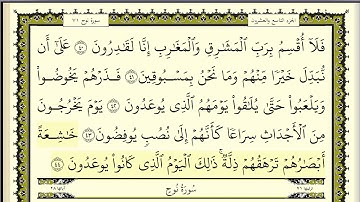 الجزء التاسع والعشرون سورة نوح ٧١
فَلَآ أُقْسِمُ بِرَبِّ ٱلْمَشَٰرِقِ وَٱلْمَغَٰرِبِ إِنَّا لَقَٰدِرُونَ ٤٠ عَلَىٰٓ أَن
نُّبَدِّلَ خَيْرًا مِّنْهُمْ وَمَا نَحْنُ بِمَسْبُوقِينَ ٤١ فَذَرْهُمْ يَخُوضُوا۟
وَيَلْعَبُوا۟ حَتَّىٰ يُلَٰقُوا۟ يَوْمَهُمُ ٱلَّذِى يُوعَدُونَ ٤٢ يَوْمَ يَخْرُجُونَ
مِنَ ٱلْأَجْدَاثِ سِرَاعًا كَأَنَّهُمْ إِلَىٰ نُصُبٍ يُوفِضُونَ ٤٣ خَٰشِعَةً
أَبْصَٰرُهُمْ تَرْهَقُهُمْ ذِلَّةٌ ۚ ذَٰلِكَ ٱلْيَوْمُ ٱلَّذِى كَانُوا۟ يُوعَدُونَ ٤٤
ترتيبها ٧١ سُورَةُ نُوحٍ آياتها ٢٨